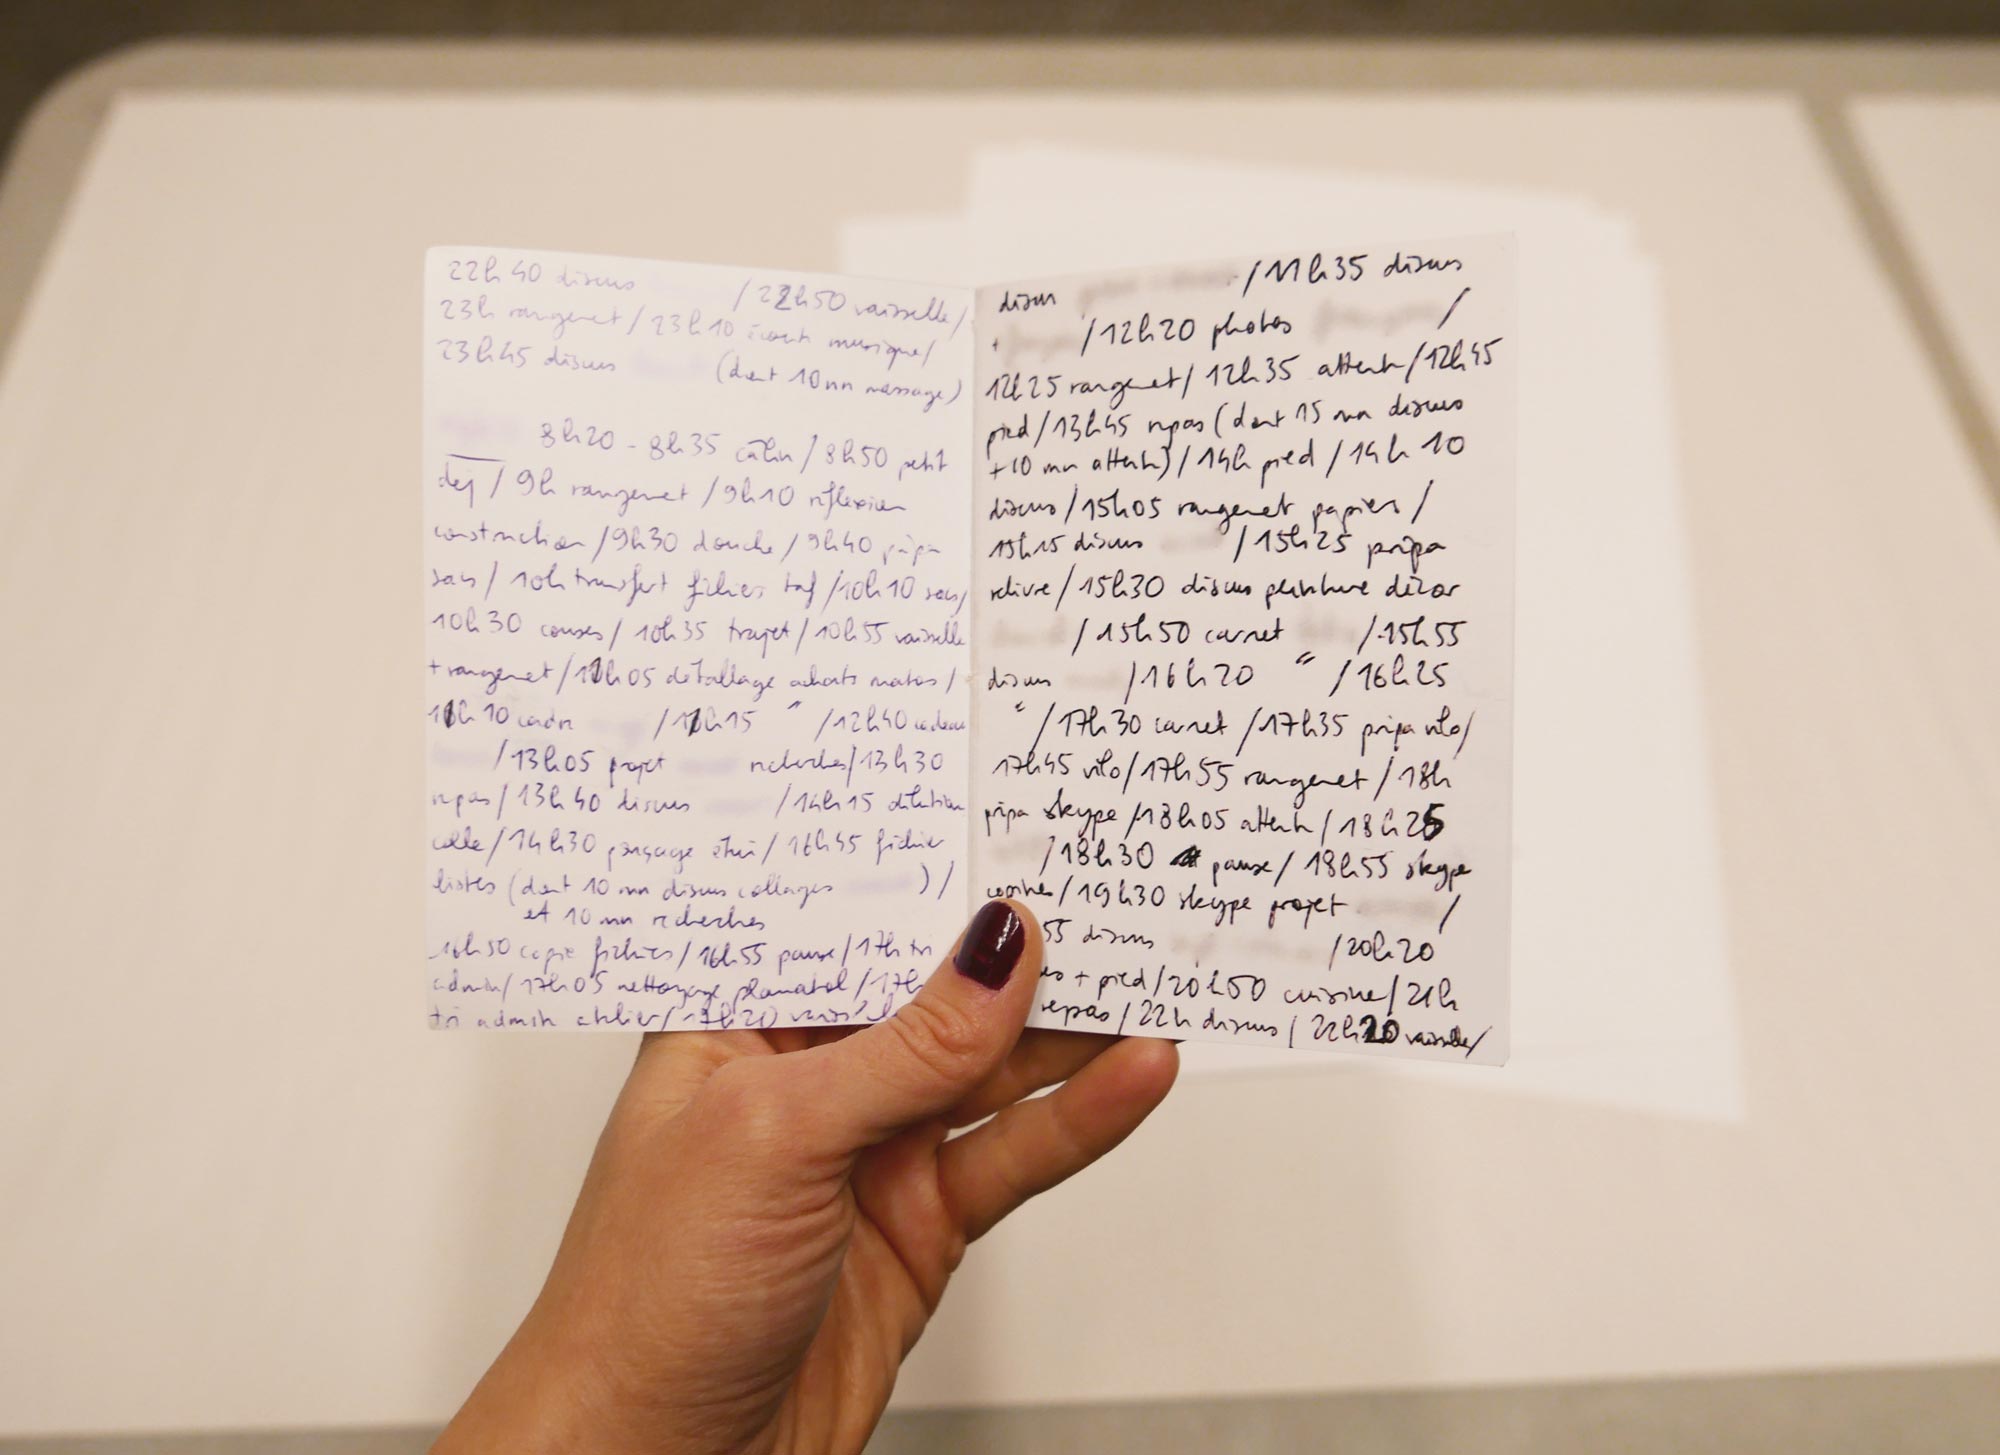 22h40 discus / 22h50 vaisselle /
23h rangemet / 23h10 écoute musique /
23h45 discus (dont 10mn massage)
8h20 - 8h35 câlin / 8h50 petit
dej / 9h rangemet / 9h10 réflexion
construction / 9h30 douche / 9h40 prépa
sacs / 10h transfert fichiers taf / 10h10 sacs /
10h30 courses / 10h35 trajet / 10h55 vaisselle
+ rangemet / 11h05 déballage achats matos /
11h10 cadre / 11h15 " / 12h40 cadeau
/ 13h05 projet recherches / 13h30
repas / 13h40 discus / 14h15 dilution
colle / 14h30 ponçage étui / 16h45 fichier
listes (dont 10 mn discus collages ) /
et 10 mn recherches
16h50 copie fichiers / 16h55 pause / 17h tri
admin / 17h05 nettoyage planatol / 17h
tri admin atelier / 17h20
discus / 11h35 discus
+ / 12h20 photos /
12h25 rangemet / 12h35 attente / 12h45
pied / 13h45 repas (dont 15 mn discus
+10 mn attente) / 14h pied / 14h10
discus / 15h05 rangemet papiers /
15h15 discus / 15h25 prépa
relivre / 15h30 discus peinture décor
/ 15h50 carnet / 15h55
discus / 16h20 " / 16h25
" / 17h30 carnet / 17h35 prépa vélo /
17h45 vélo / 17h55 rangemet / 18h
prépa skype / 18h05 attente / 18h25
/ 18h30 pause / 18h55 skype
/ 19h30 skype projet /
55 discus / 20h20
+ pied / 20h50 cuisine / 21h
repas / 22h discus / 22h20 vaisselle /